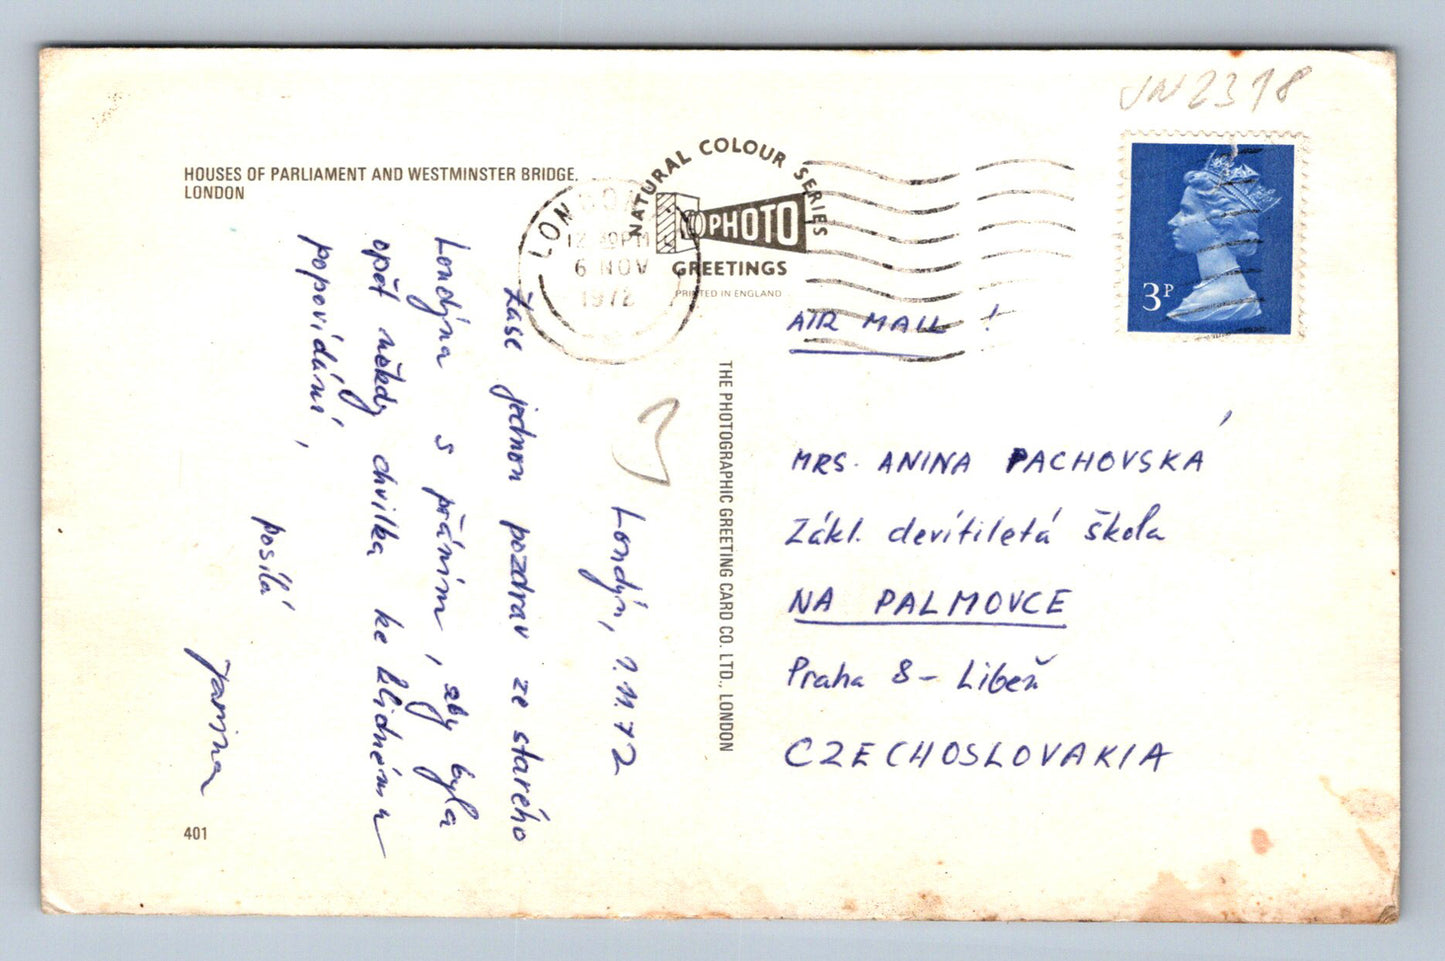 UN2318
HOUSES OF PARLIAMENT AND WESTMINSTER BRIDGE.
LONDON
NATURAL COLOUR SERIES
PHOTO
GREETINGS
PRINTED IN ENGLAND
LONDON
12 30PM
6 NOV
1972
3P
AIR MAIL !
THE PHOTOGRAPHIC GREETING CARD CO. LTD., LONDON
Londýn, 7.11.72
Zase jednou pozdrav ze starého
Londýna s přáním, aby byla
opět někdy chvilka ke klidnému
popovídání,
posílá
Jarina
MRS. ANINA PACHOVSKÁ
Zákl. devítiletá škola
NA PALMOVCE
Praha 8 - Libeň
CZECHOSLOVAKIA
401